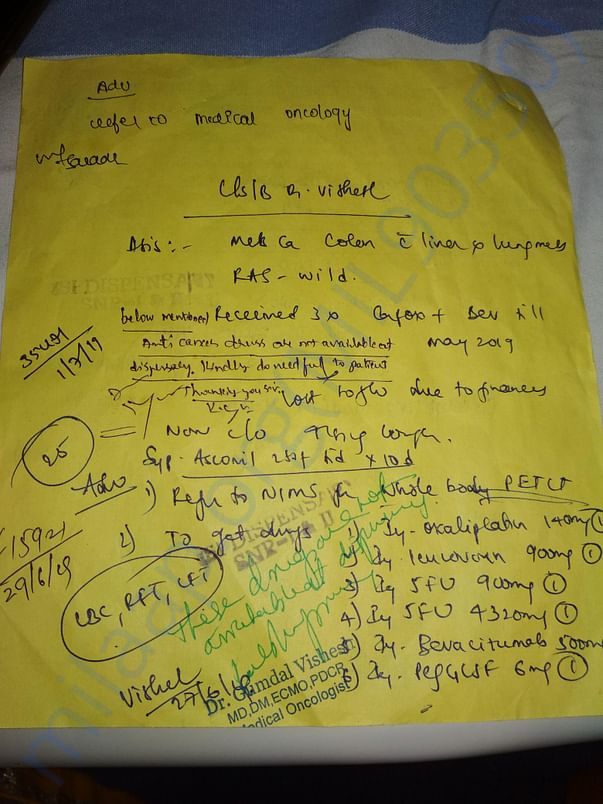 Adv
refer to medical oncology
C/s/B Dr. Vishesh
Mets Ca Colon c̄ liver & lung mets
RAS - wild.
ESI DISPENSARY
below mentioned Received 3x + Bev till
Anti cancer drugs are not available at May 2019
dispensary. Kindly do needful to patient
Thanking you sir. lost to f/u due to finances
1/7/19
Now c/o cough.
25
Syp. Ascoril 2tsf td x 10d
Adv
1) Refer to NIMS for whole body PETCT
2) To get drugs
1) Inj. Oxaliplatin 140mg ①
2) Inj. leucovorin 900mg ①
3) Inj 5FU 900mg ①
4) Inj 5FU 4320mg ①
5) Inj. Bevacitumab 500mg
6) Inj. PegGCSF 6mg ①
15921
29/6/19
CBC, RFT, LFT
these drugs are not
available at dispensary
Vishesh
27/6/19
Dr. Gundal Vishesh
MD,DM,ECMO,PDCR
Medical Oncologist